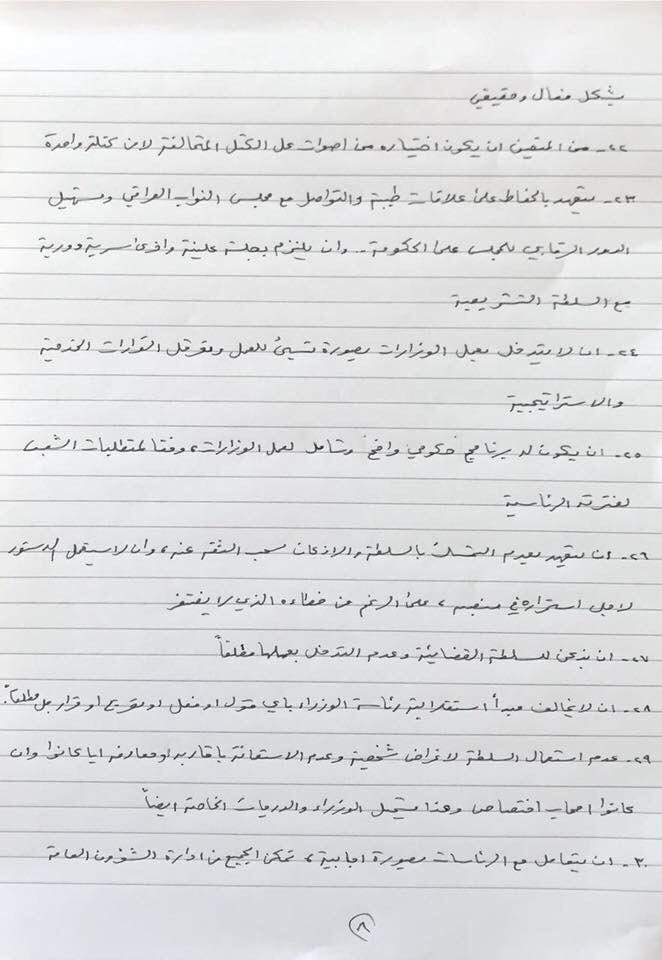 بشكل فعال وحقيقي
٢٢- من المتيقن ان يكون اختياره من اصوات كل الكتل المتحالفة لا من كتلة واحدة
٢٣- يتعهد بالحفاظ على علاقات طيبة والتواصل مع مجلس النواب العراقي وتسهيل
الدور الرقابي للمجلس على الحكومة .. وان يلتزم بجلسة علنية واخرى سرية دورية
مع السلطة التشريعية
٢٤- ان لا يتدخل بعمل الوزارات بصورة تسيئ للعمل وتعرقل القرارات الخدمية
والاستراتيجية
٢٥- ان يكون له برنامج حكومي واضح وشامل لعمل الوزارات، وفقا لمتطلبات الشعب
لفترته الرئاسية
٢٦- ان يتعهد بعدم التمسك بالسلطة والاذعان سحب الثقة عنه، وان لا يستغل الدستور
لاجل استمراره في منصبه، على الرغم من خطاءه الذي لا يغتفر
٢٧- ان يذعن للسلطة القضائية وعدم التدخل بعملها مطلقاً
٢٨- ان لا يخالف مبدأ استقلالية رئاسة الوزراء باي قول او فعل او توقيع او قرار بل مطلقاً.
٢٩- عدم استعمال السلطة لاغراض شخصية وعدم الاستعانة باقاربه او معارفه ايا كانوا وان
كانوا اصحاب اختصاص وهذا يشمل الوزراء والدرجات الخاصة ايضاً
٣٠- ان يتعامل مع الرئاسات بصورة اجابية، تمكن الجميع من ادارة الشؤون العامة
٨